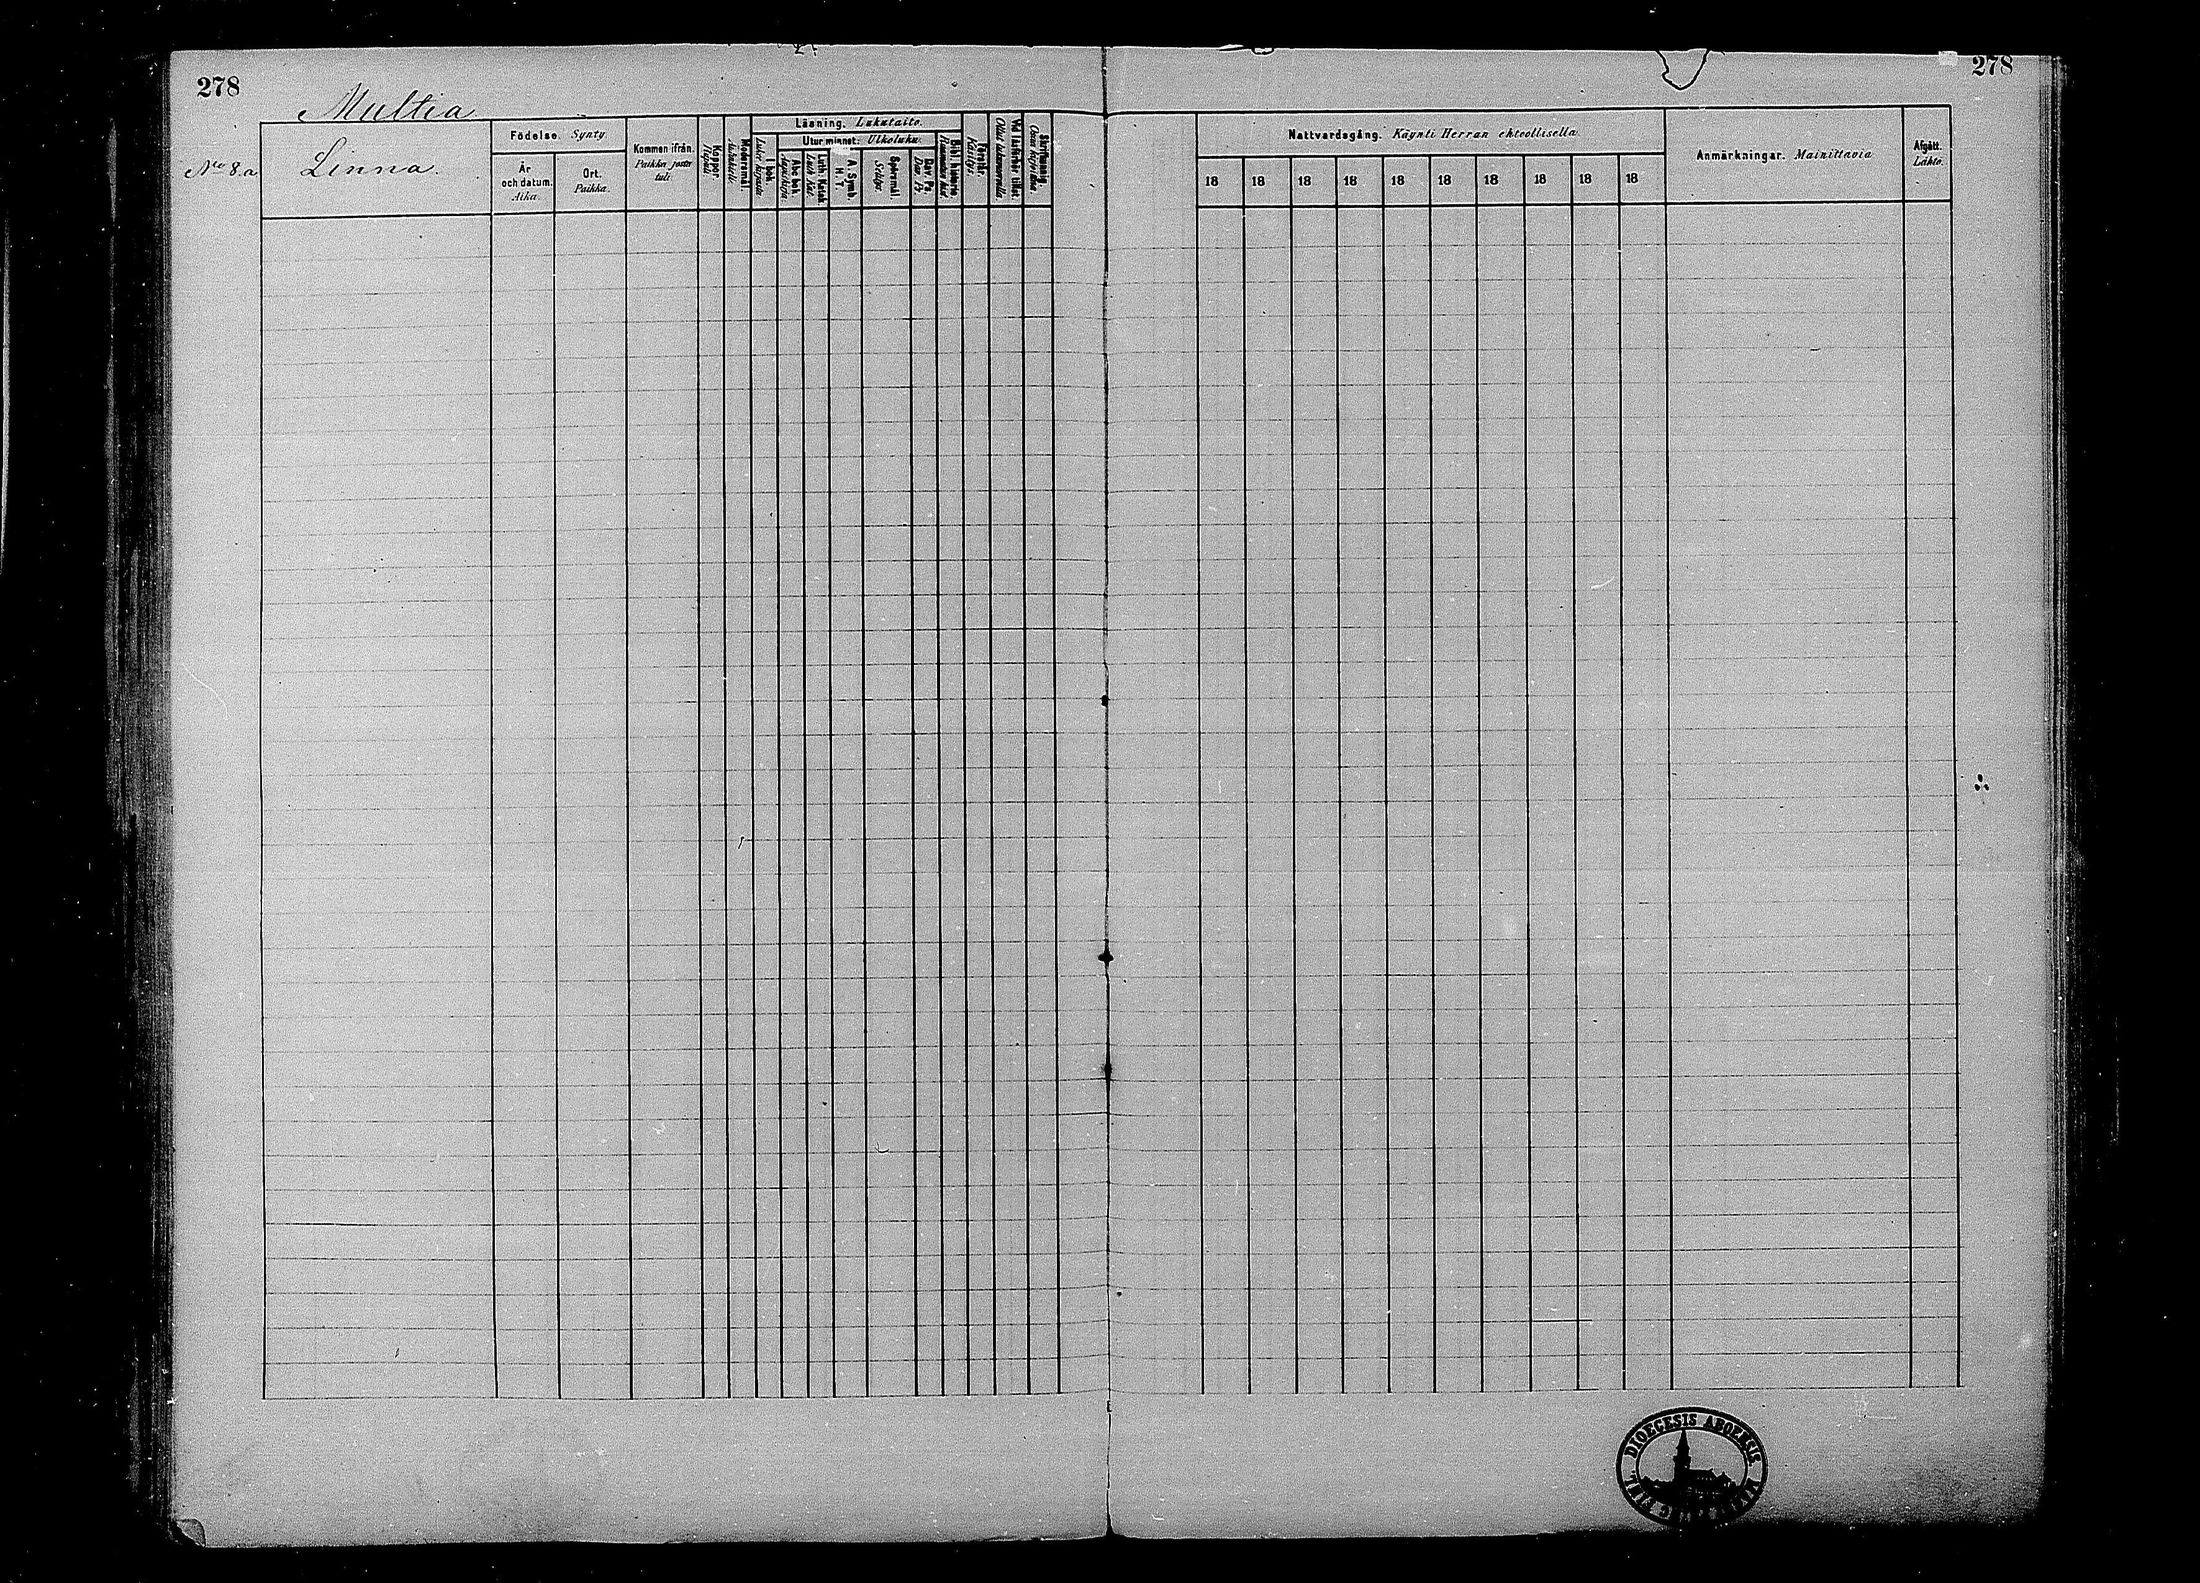 278
278
Multia
Nro 8.a
Linna.
Födelse. Synty.
År och datum. Aika.
Ort. Paikka.
Kommen ifrån. Paikka josta tuli.
Koppor. Rupuli.
Modersmål.
Läsning. Lukutaito.
I bok.
Utur minnet: Ulkoluku:
Abc bok.
Luth. Katek. Luth. Kat.
A. Symb. H. T.
Spörsmål.
Dav. Ps. Dav. Ps.
Bibl. historia.
Förstår. Käsitys.
Vid läsförhör tiket.
Skriftskunnig.
Nattvardsgång. Käynti Herran ehtoollisella.
18 18 18 18 18 18 18 18 18 18
Anmärkningar. Mainittavia
Afgått. Lähtö.
DIOECESIS ABOENSIS